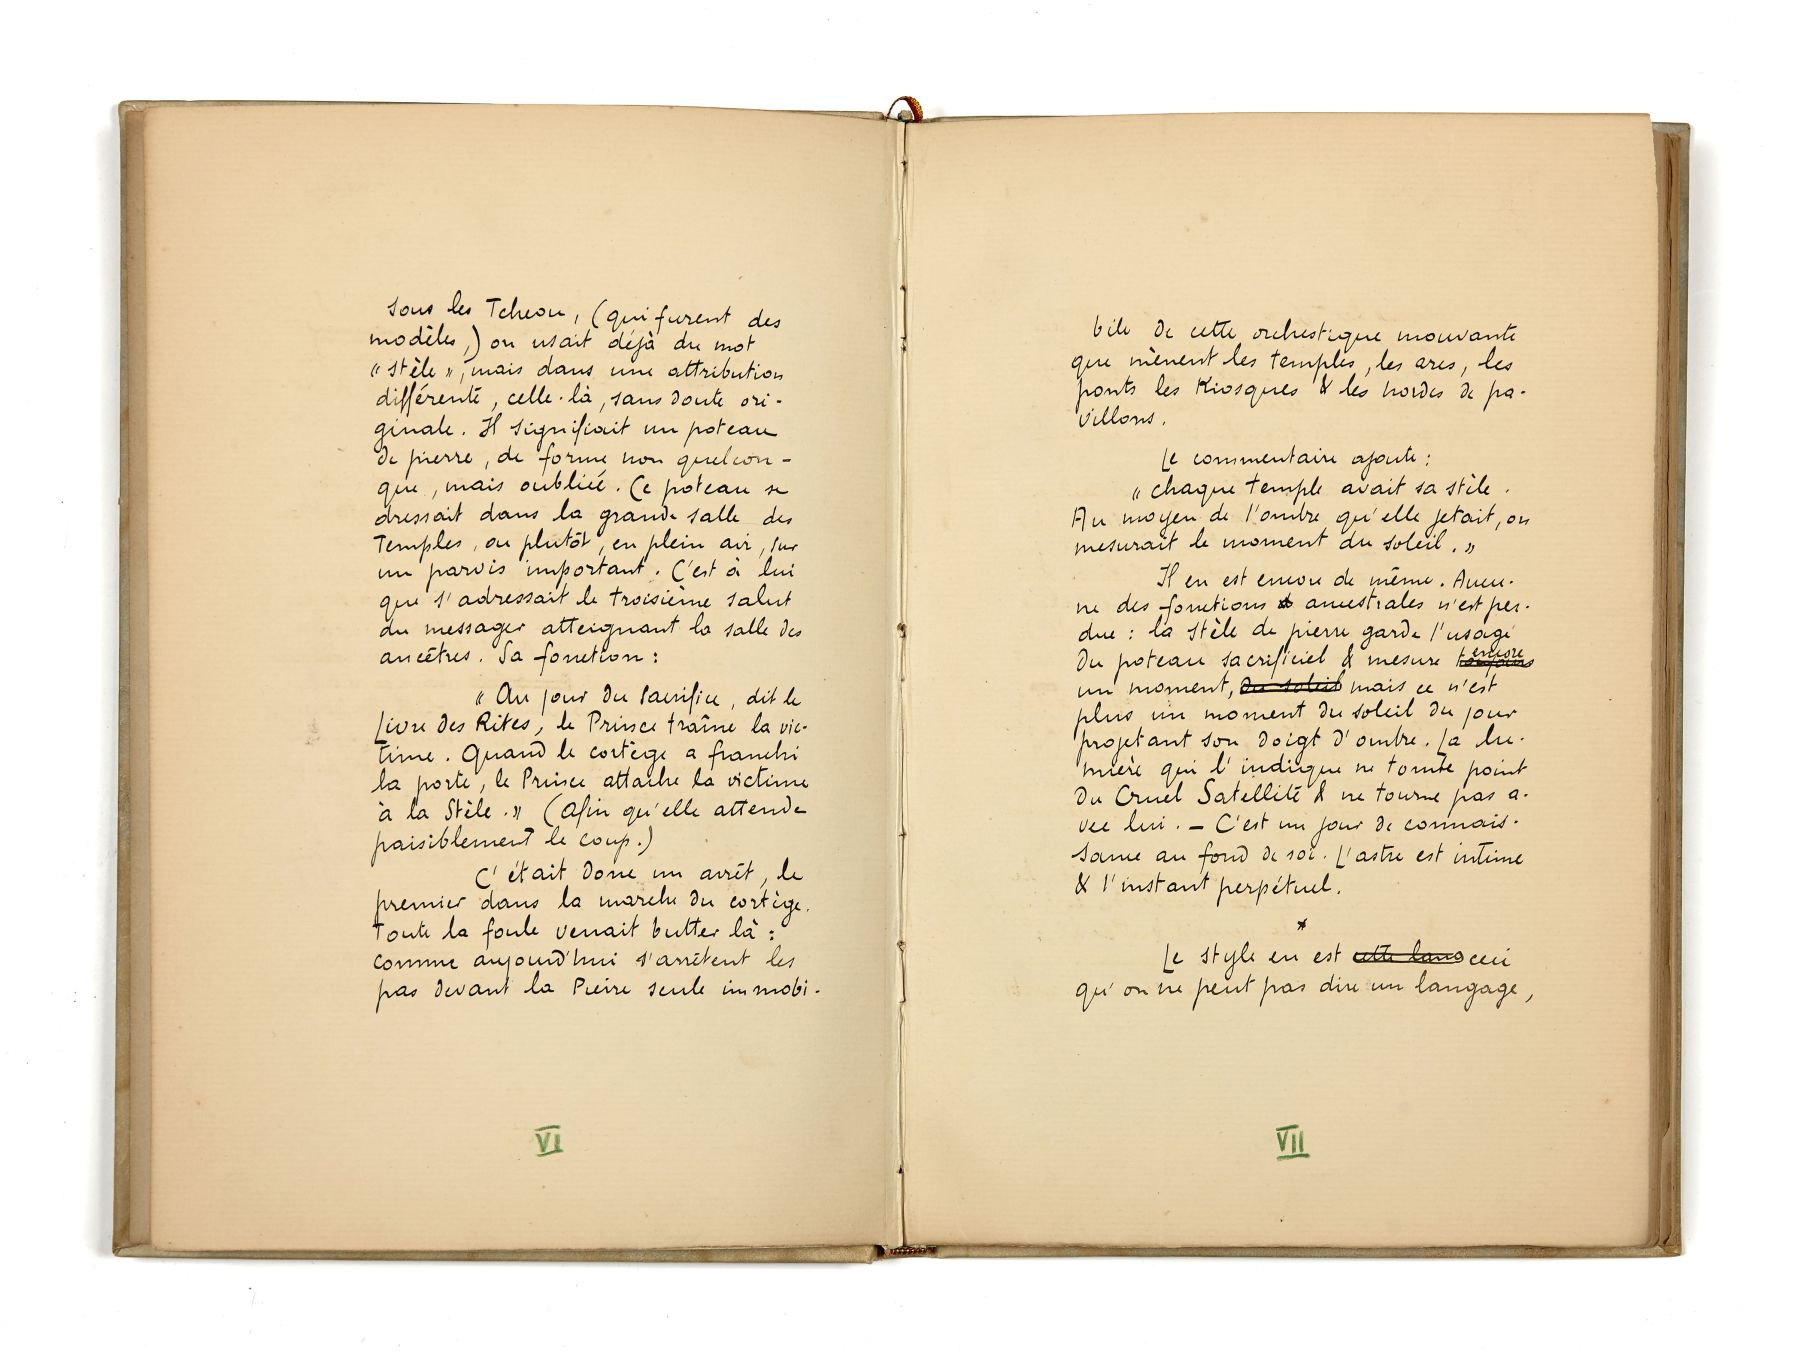 Sous les Tcheou, (qui furent des
modèles,) on usait déjà du mot
« stèle », mais dans une attribution
différente, celle-là, sans doute ori-
ginale. Il signifiait un poteau
de pierre, de forme non quelcon-
que, mais oubliée. Ce poteau se
dressait dans la grande salle des
Temples, ou plutôt, en plein air, sur
un parvis important. C'est à lui
que s'adressait le troisième salut
du messager atteignant la salle des
ancêtres. Sa fonction :
« Au jour du sacrifice, dit le
Livre des Rites, le Prince traîne la vic-
time. Quand le cortège a franchi
la porte, le Prince attache la victime
à la Stèle. » (Afin qu'elle attende
paisiblement le coup.)
C'était donc un arrêt, le
premier dans la marche du cortège.
Toute la foule venait butter là :
comme aujourd'hui s'arrêtent les
pas devant la Pierre seule immobi-
VI
bile de cette orchestique mouvante
que mènent les temples, les arcs, les
ponts les Kiosques & les hordes de pa-
villons.
Le commentaire ajoute :
« Chaque temple avait sa stèle.
Au moyen de l'ombre qu'elle jetait, on
mesurait le moment du soleil. »
Il en est encore de même. Aucu-
ne des fonctions ancestrales n'est per-
due : la stèle de pierre garde l'usage
du poteau sacrificiel & mesure toujours encore
un moment, du soleil mais ce n'est
plus un moment du soleil du jour
projetant son doigt d'ombre. La lu-
mière qui l'indique ne tombe point
du Cruel Satellite & ne tourne pas a-
vec lui. – C'est un jour de connais-
sance au fond de soi. L'astre est intime
& l'instant perpétuel.
*
Le style en est cette lang ceci
qu'on ne peut pas dire un langage,
VII